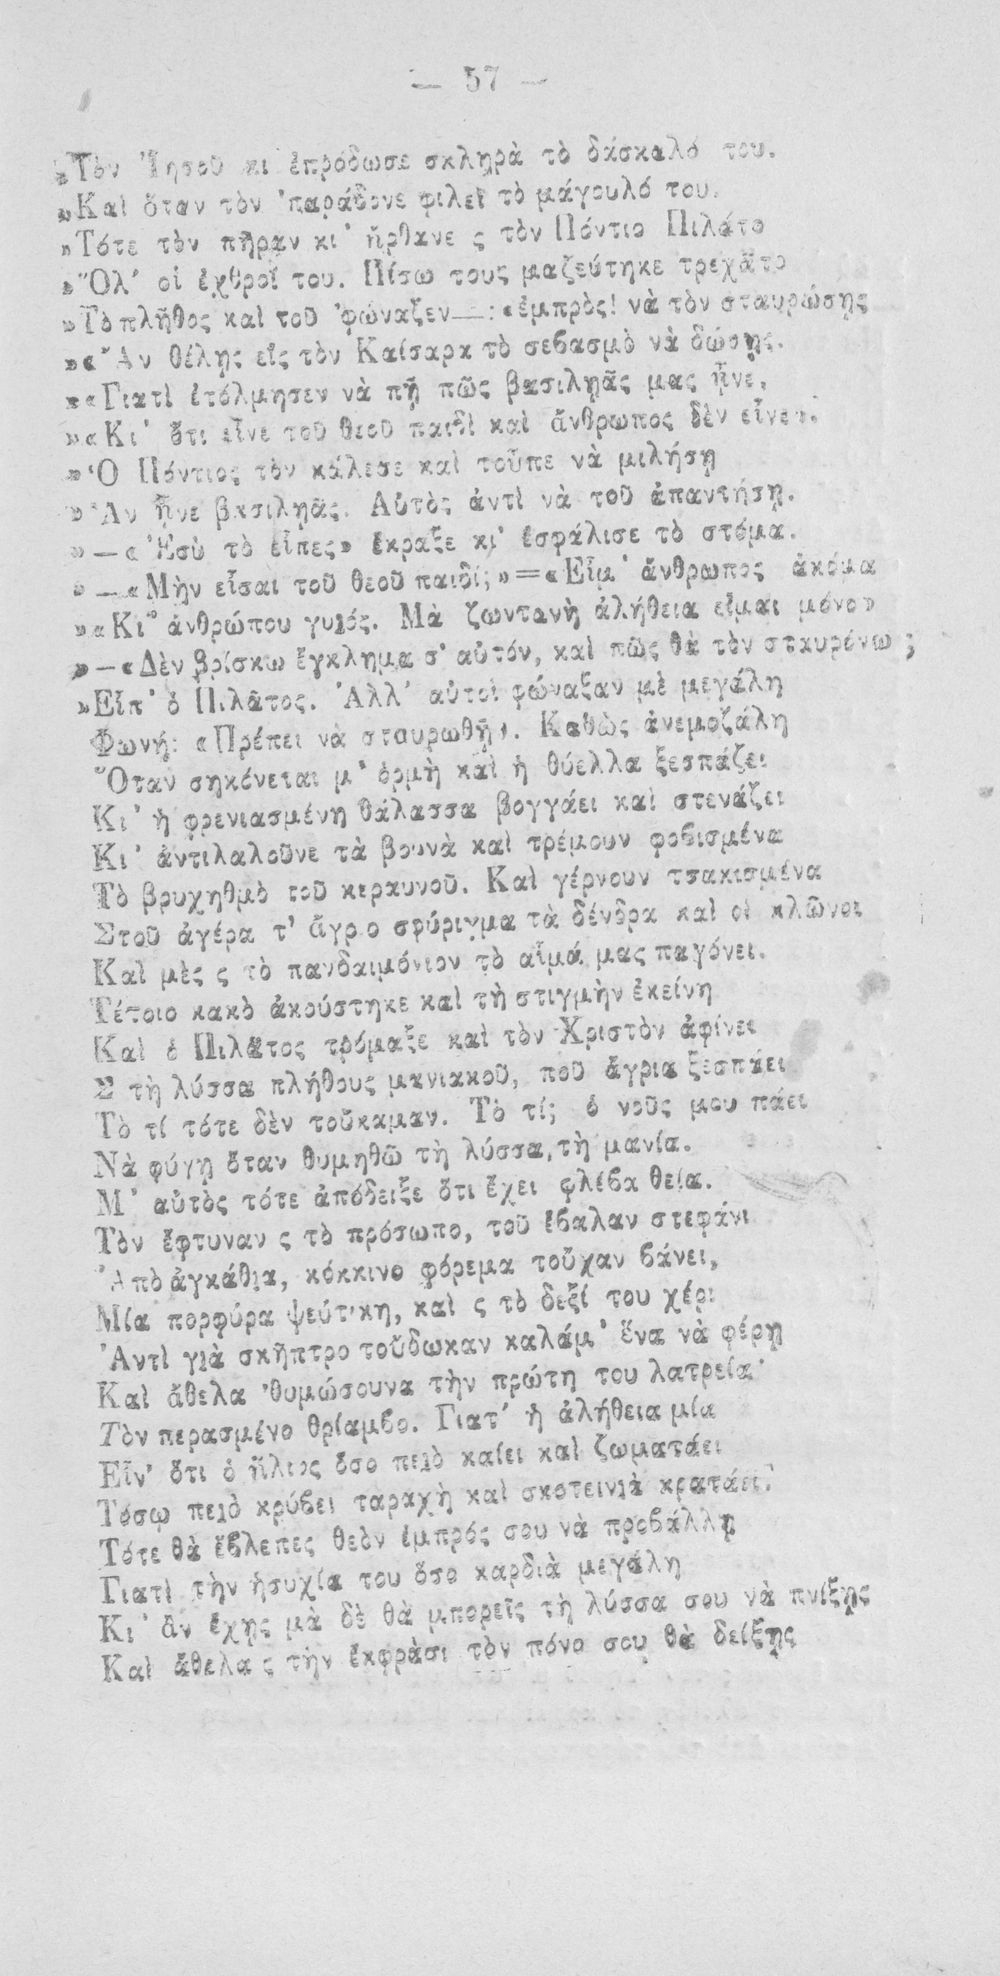 — 57 —
»Τὸν Ἰησοῦ κι ἐπρόδωσε σκληρὰ τὸ δάσκαλό του.
»Καὶ ὅταν τὸν 'παράδονε φιλεῖ τὸ μάγουλό του.
»Τότε τὸν πῆραν κι' ἤρθανε ς τὸν Πόντιο Πιλάτο
»Ὅλ' οἱ ἐχθροί του. Πίσω τους μαζεύτηκε τρεχᾶτο
»Τὸ πλῆθος καὶ τοῦ 'φώναξεν—: «ἐμπρὸς! νὰ τὸν σταυρώσῃς
»«Ἂν θέλῃς εἰς τὸν Καίσαρα τὸ σεβασμὸ νὰ δώσῃς.
»«Γιατὶ ἐτόλμησεν νὰ πῇ πῶς βασιληᾶς μας ἦνε,
»«Κι' ὅτι εἶνε τοῦ θεοῦ παιδὶ καὶ ἄνθρωπος δὲν εἶνε».
»Ὁ Πόντιος τὸν κάλεσε καὶ τοὖπε νὰ μιλήσῃ
»Ἂν ἦνε βασιληᾶς. Αὐτὸς ἀντὶ νὰ τοῦ ἀπαντήσῃ.
»—«Ἐσὺ τὸ εἶπες» ἔκραξε κι' ἐσφάλισε τὸ στόμα.
»—«Μὴν εἶσαι τοῦ θεοῦ παιδί;»=«Εἶμ' ἄνθρωπος ἀκόμα
»«Κι' ἀνθρώπου γυιός. Μὰ ζωντανὴ ἀλήθεια εἶμαι μόνο»
»—«Δὲν βρίσκω ἔγκλημα σ' αὐτόν, καὶ πῶς θὰ τὸν σταυρόνω;
»Εἶπ' ὁ Πιλᾶτος. Ἀλλ' αὐτοὶ φώναξαν μὲ μεγάλη
Φωνή: «Πρέπει νὰ σταυρωθῇ». Καθὼς ἀνεμοζάλη
Ὅταν σηκόνεται μ' ὁρμὴ καὶ ἡ θύελλα ξεσπάζει
Κι' ἡ φρενιασμένη θάλασσα βογγάει καὶ στενάζει
Κι' ἀντιλαλοῦνε τὰ βουνὰ καὶ τρέμουν φοβισμένα
Τὸ βρυχηθμὸ τοῦ κεραυνοῦ. Καὶ γέρνουν τσακισμένα
Στοῦ ἀγέρα τ' ἄγρ ο σφύριγμα τὰ δένδρα καὶ οἱ κλῶνοι
Καὶ μὲς ς τὸ πανδαιμόνιον τὸ αἷμά μας παγόνει.
Τέτοιο κακὸ ἀκούστηκε καὶ τὴ στιγμὴν ἐκείνη
Καὶ ὁ Πιλᾶτος τρόμαξε καὶ τὸν Χριστὸν ἀφίνει
Σ τὴ λύσσα πλήθους μανιακοῦ, ποῦ ἄγρια ξεσπάει
Τὸ τί τότε δὲν τοὔκαμαν. Τὸ τί; ὁ νοῦς μου πάει
Νὰ φύγῃ ὅταν θυμηθῶ τὴ λύσσα, τὴ μανία.
Μ' αὐτὸς τότε ἀπόδειξε ὅτι ἔχει φλέβα θεία.
Τὸν ἔφτυναν ς τὸ πρόσωπο, τοῦ ἔβαλαν στεφάνι
Ἀπὸ ἀγκάθια, κόκκινο φόρεμα τοὖχαν βάνει,
Μία πορφύρα ψεύτικη, καὶ ς τὸ δεξί του χέρι
Ἀντὶ γιὰ σκῆπτρο τοὔδωκαν καλάμ' ἕνα νὰ φέρῃ
Καὶ ἄθελα 'θυμώσουνα τὴν πρώτη του λατρεία·
Τὸν περασμένο θρίαμβο. Γιατ' ἡ ἀλήθεια μία
Εἶν' ὅτι ὁ ἥλιος ὅσο πειὸ καίει καὶ ζωματάει
Τόσῳ πειὸ κρύβει ταραχὴ καὶ σκοτεινιὰ κρατάει.
Τότε θὰ ἔβλεπες θεὸν ἐμπρός σου νὰ προβάλλῃ
Γιατὶ τὴν ἡσυχία του ὅσο καρδιὰ μεγάλη
Κι' ἂν ἔχῃς μὰ δὲ θὰ μπορεῖς τὴ λύσσα σου νὰ πνίξῃς
Καὶ ἄθελα ς τὴν ἔκφρασι τὸν πόνο σου θὰ δείξῃς